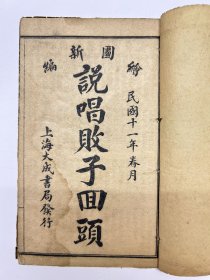 繪圖新編
民國十一年春月
説唱敗子囬頭
上海大成書局發行